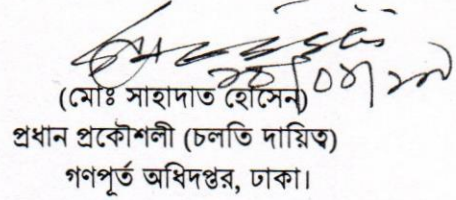 (মোঃ সাহাদাত হোসেন)
প্রধান প্রকৌশলী (চলতি দায়িত্ব)
গণপূর্ত অধিদপ্তর, ঢাকা।